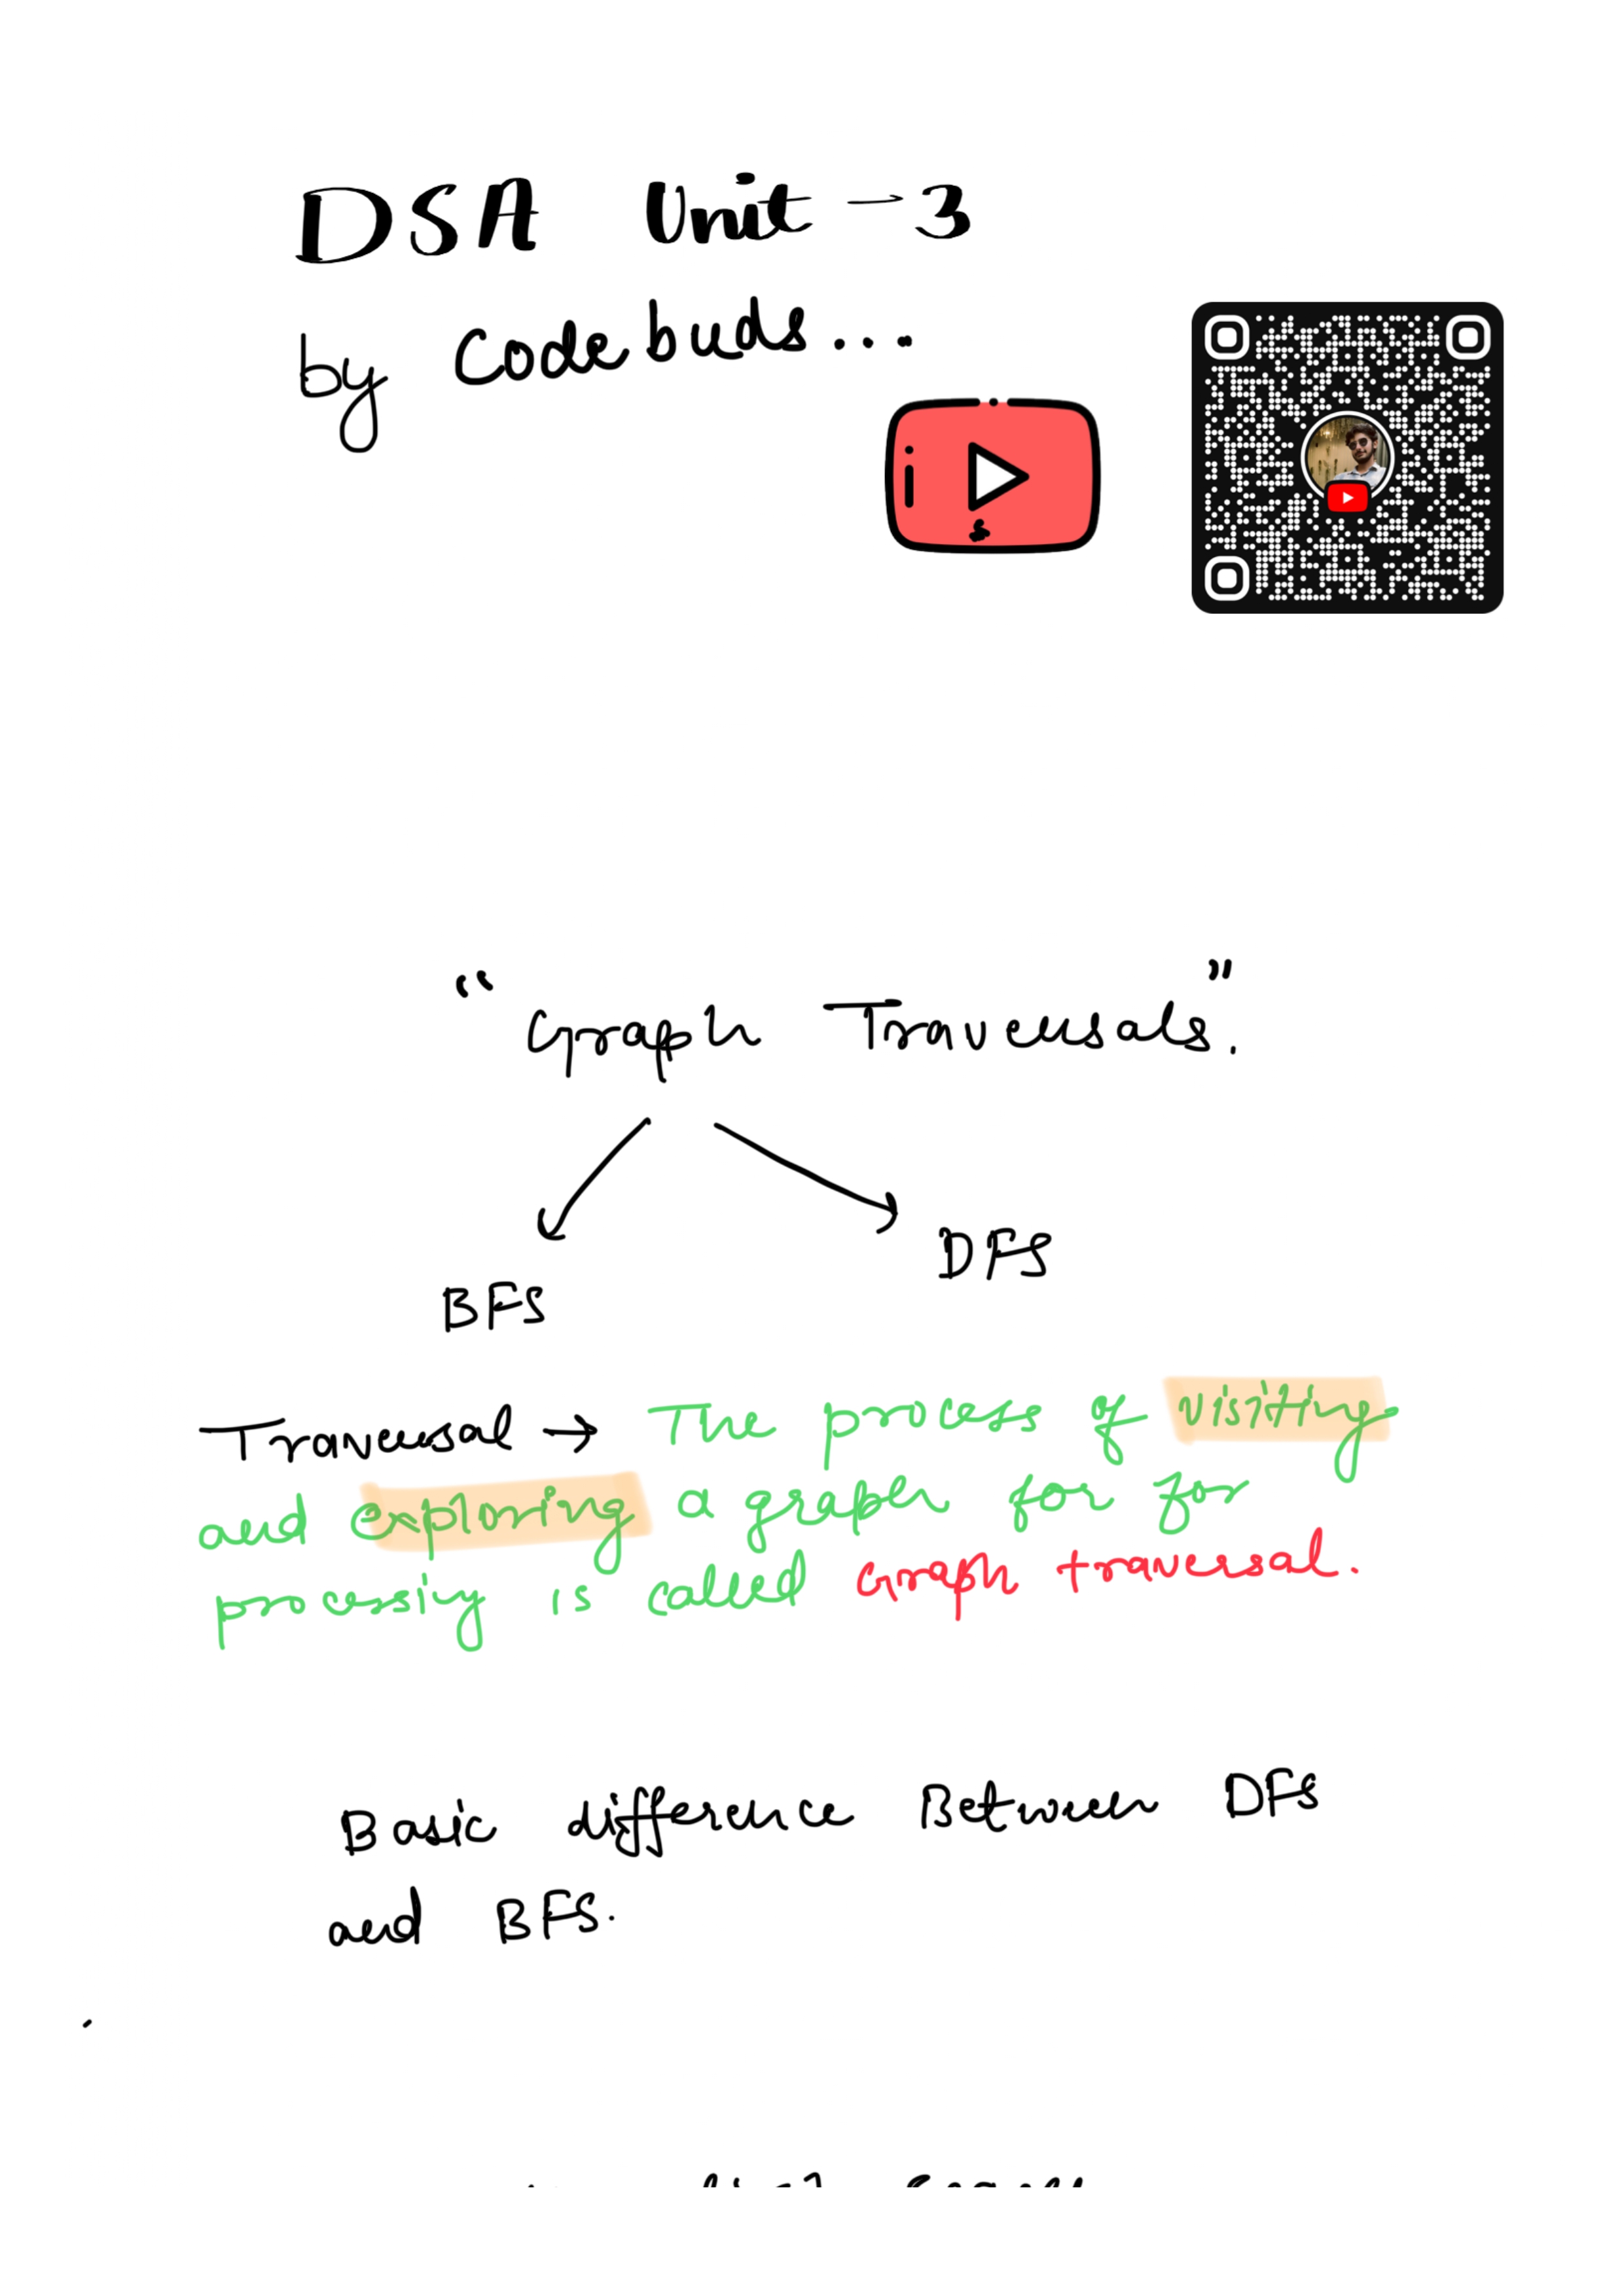 DSA Unit - 3
by Codebuds...
"Graph Traversals."
DFS
BFS
Traversal → The process of visiting
and exploring a graph for for
processing is called Graph traversal.
Basic difference Between DFS
and BFS.